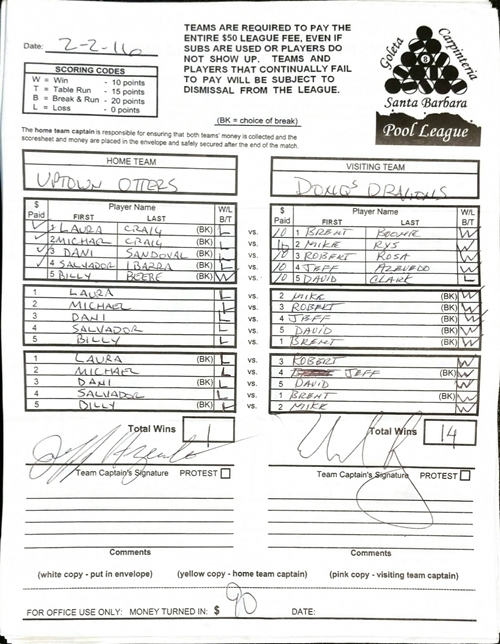 Date: 2-2-16
TEAMS ARE REQUIRED TO PAY THE
ENTIRE $50 LEAGUE FEE, EVEN IF
SUBS ARE USED OR PLAYERS DO
NOT SHOW UP. TEAMS AND
PLAYERS THAT CONTINUALLY FAIL
TO PAY WILL BE SUBJECT TO
DISMISSAL FROM THE LEAGUE.
SCORING CODES
W = Win - 10 points
T = Table Run - 15 points
B = Break & Run - 20 points
L = Loss - 0 points
(BK = choice of break)
Goleta Carpinteria
8
Santa Barbara
Pool League
The home team captain is responsible for ensuring that both teams' money is collected and the
scoresheet and money are placed in the envelope and safely secured after the end of the match.
HOME TEAM VISITING TEAM
UPTOWN OTTERS DONG'S DRAGONS
$ Paid Player Name FIRST LAST W/L B/T $ Paid Player Name FIRST LAST W/L B/T
1 LAURA CRAIG (BK) L vs. 10 1 BRENT W
2 MICHAEL CRAIG L vs. 10 2 MIKE RYS (BK) W
3 DANI SANDOVAL (BK) L vs. 10 3 ROBERT ROSA W
4 SALVADOR IBARRA (BK) L vs. 10 4 JEFF AZEVEDO W
5 BILLY BEEBE W vs. 10 5 DAVID CLARK (BK) L
1 LAURA L vs. 2 MIKE (BK) W
2 MICHAEL L vs. 3 ROBERT (BK) W
3 DANI L vs. 4 JEFF (BK) W
4 SALVADOR L vs. 5 DAVID (BK) W
5 BILLY L vs. 1 BRENT (BK) W
1 LAURA (BK) L vs. 3 ROBERT W
2 MICHAEL L vs. 4 JEFF (BK) W
3 DANI (BK) L vs. 5 DAVID W
4 SALVADOR L vs. 1 BRENT (BK) W
5 BILLY (BK) L vs. 2 MIKE W
Total Wins 1 Total Wins 14
Team Captain's Signature PROTEST Team Captain's Signature PROTEST
Comments Comments
(white copy - put in envelope) (yellow copy - home team captain) (pink copy - visiting team captain)
FOR OFFICE USE ONLY: MONEY TURNED IN: $ 90 DATE: